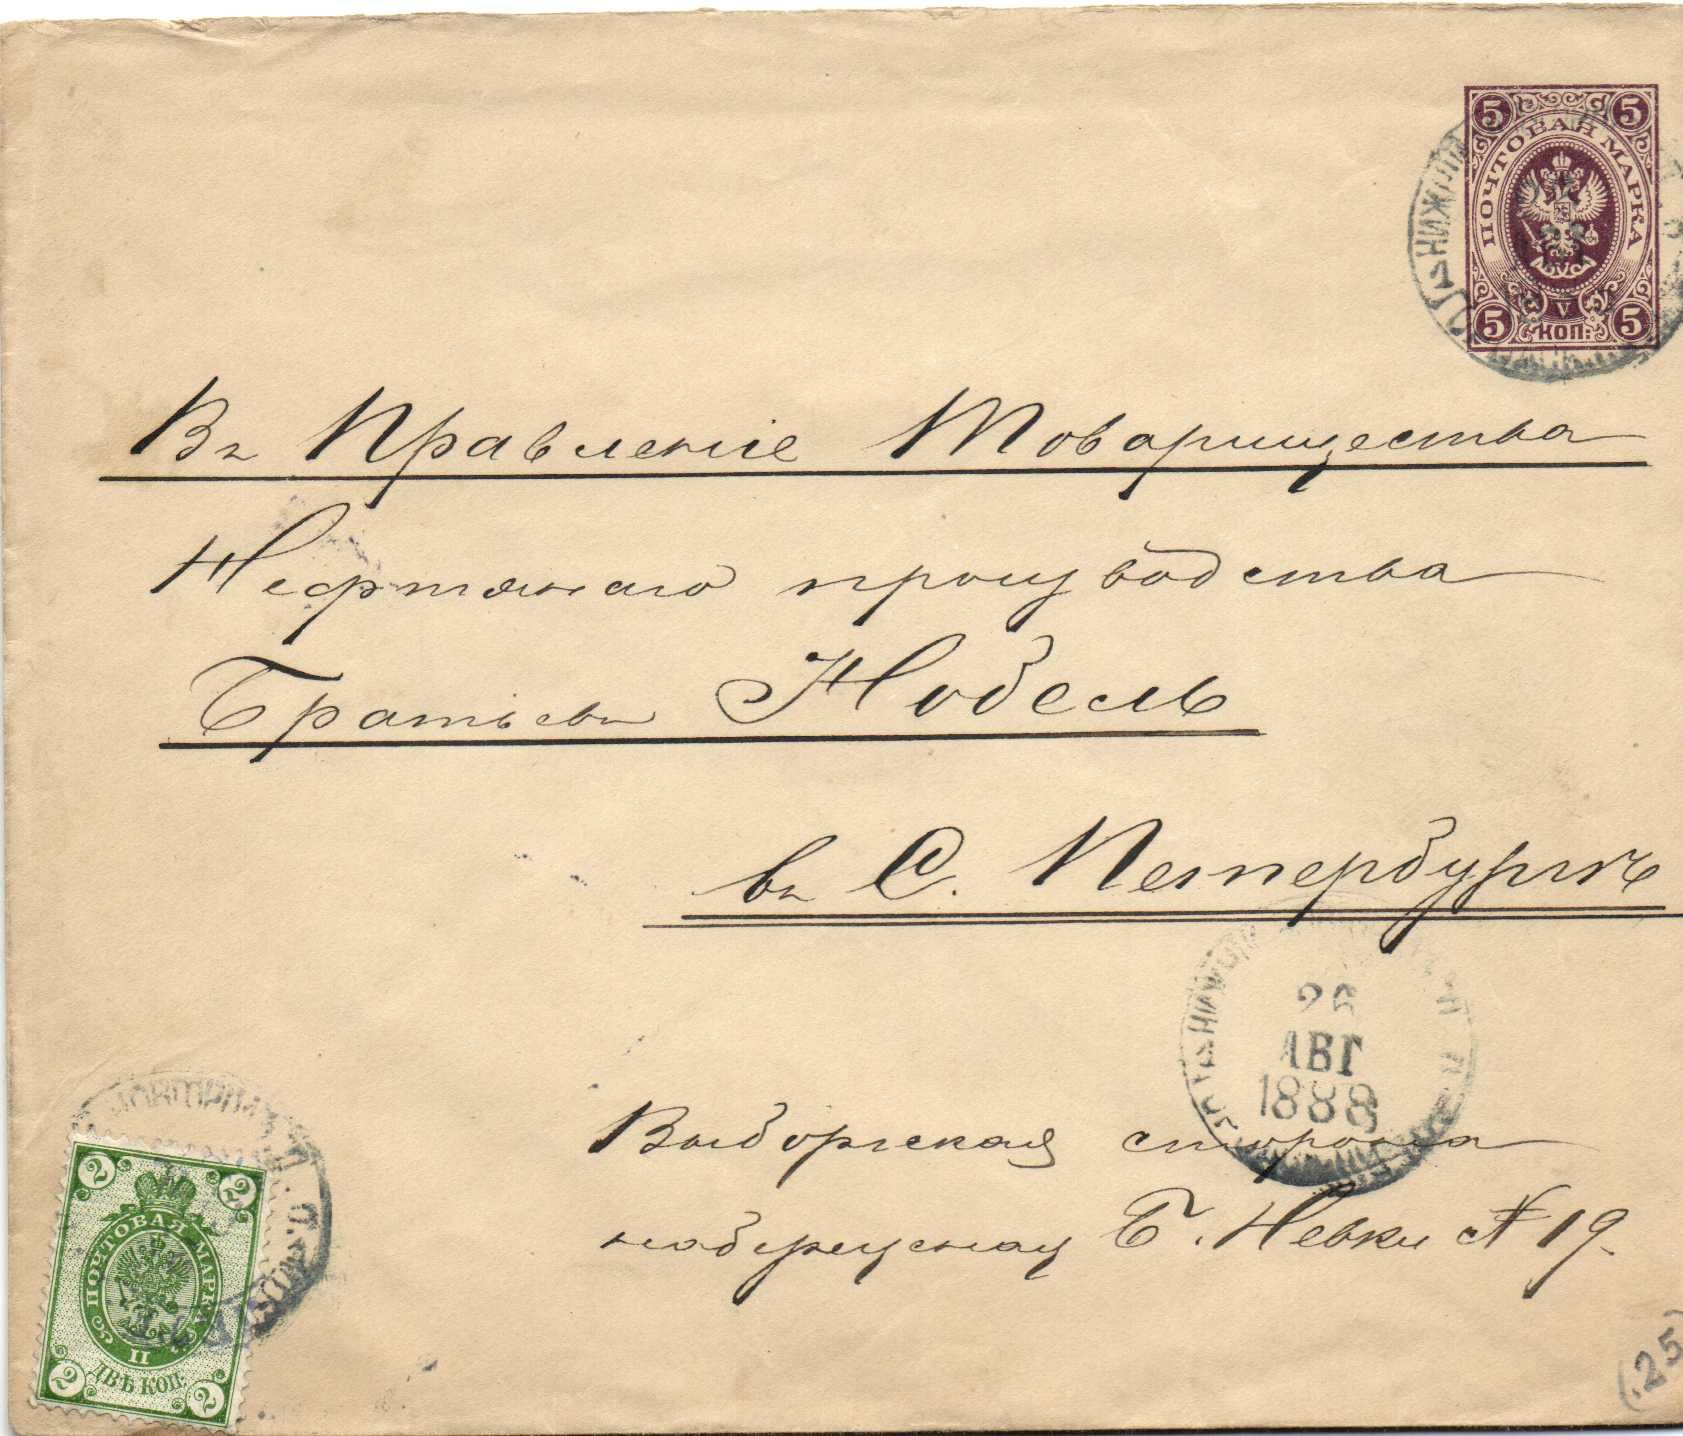 5 5
ПОЧТОВАЯ МАРКА
5 5
КОП:
Въ Правленіе Товарищества
Нефтянаго производства
Братьевъ Нобель
въ С. Петербургѣ
26
АВГ
1888
Выборгская сторона
набережная Б. Невки № 19.
2 2
ПОЧТОВАЯ МАРКА
II
ДВѢ КОП.
2 2
(.25)